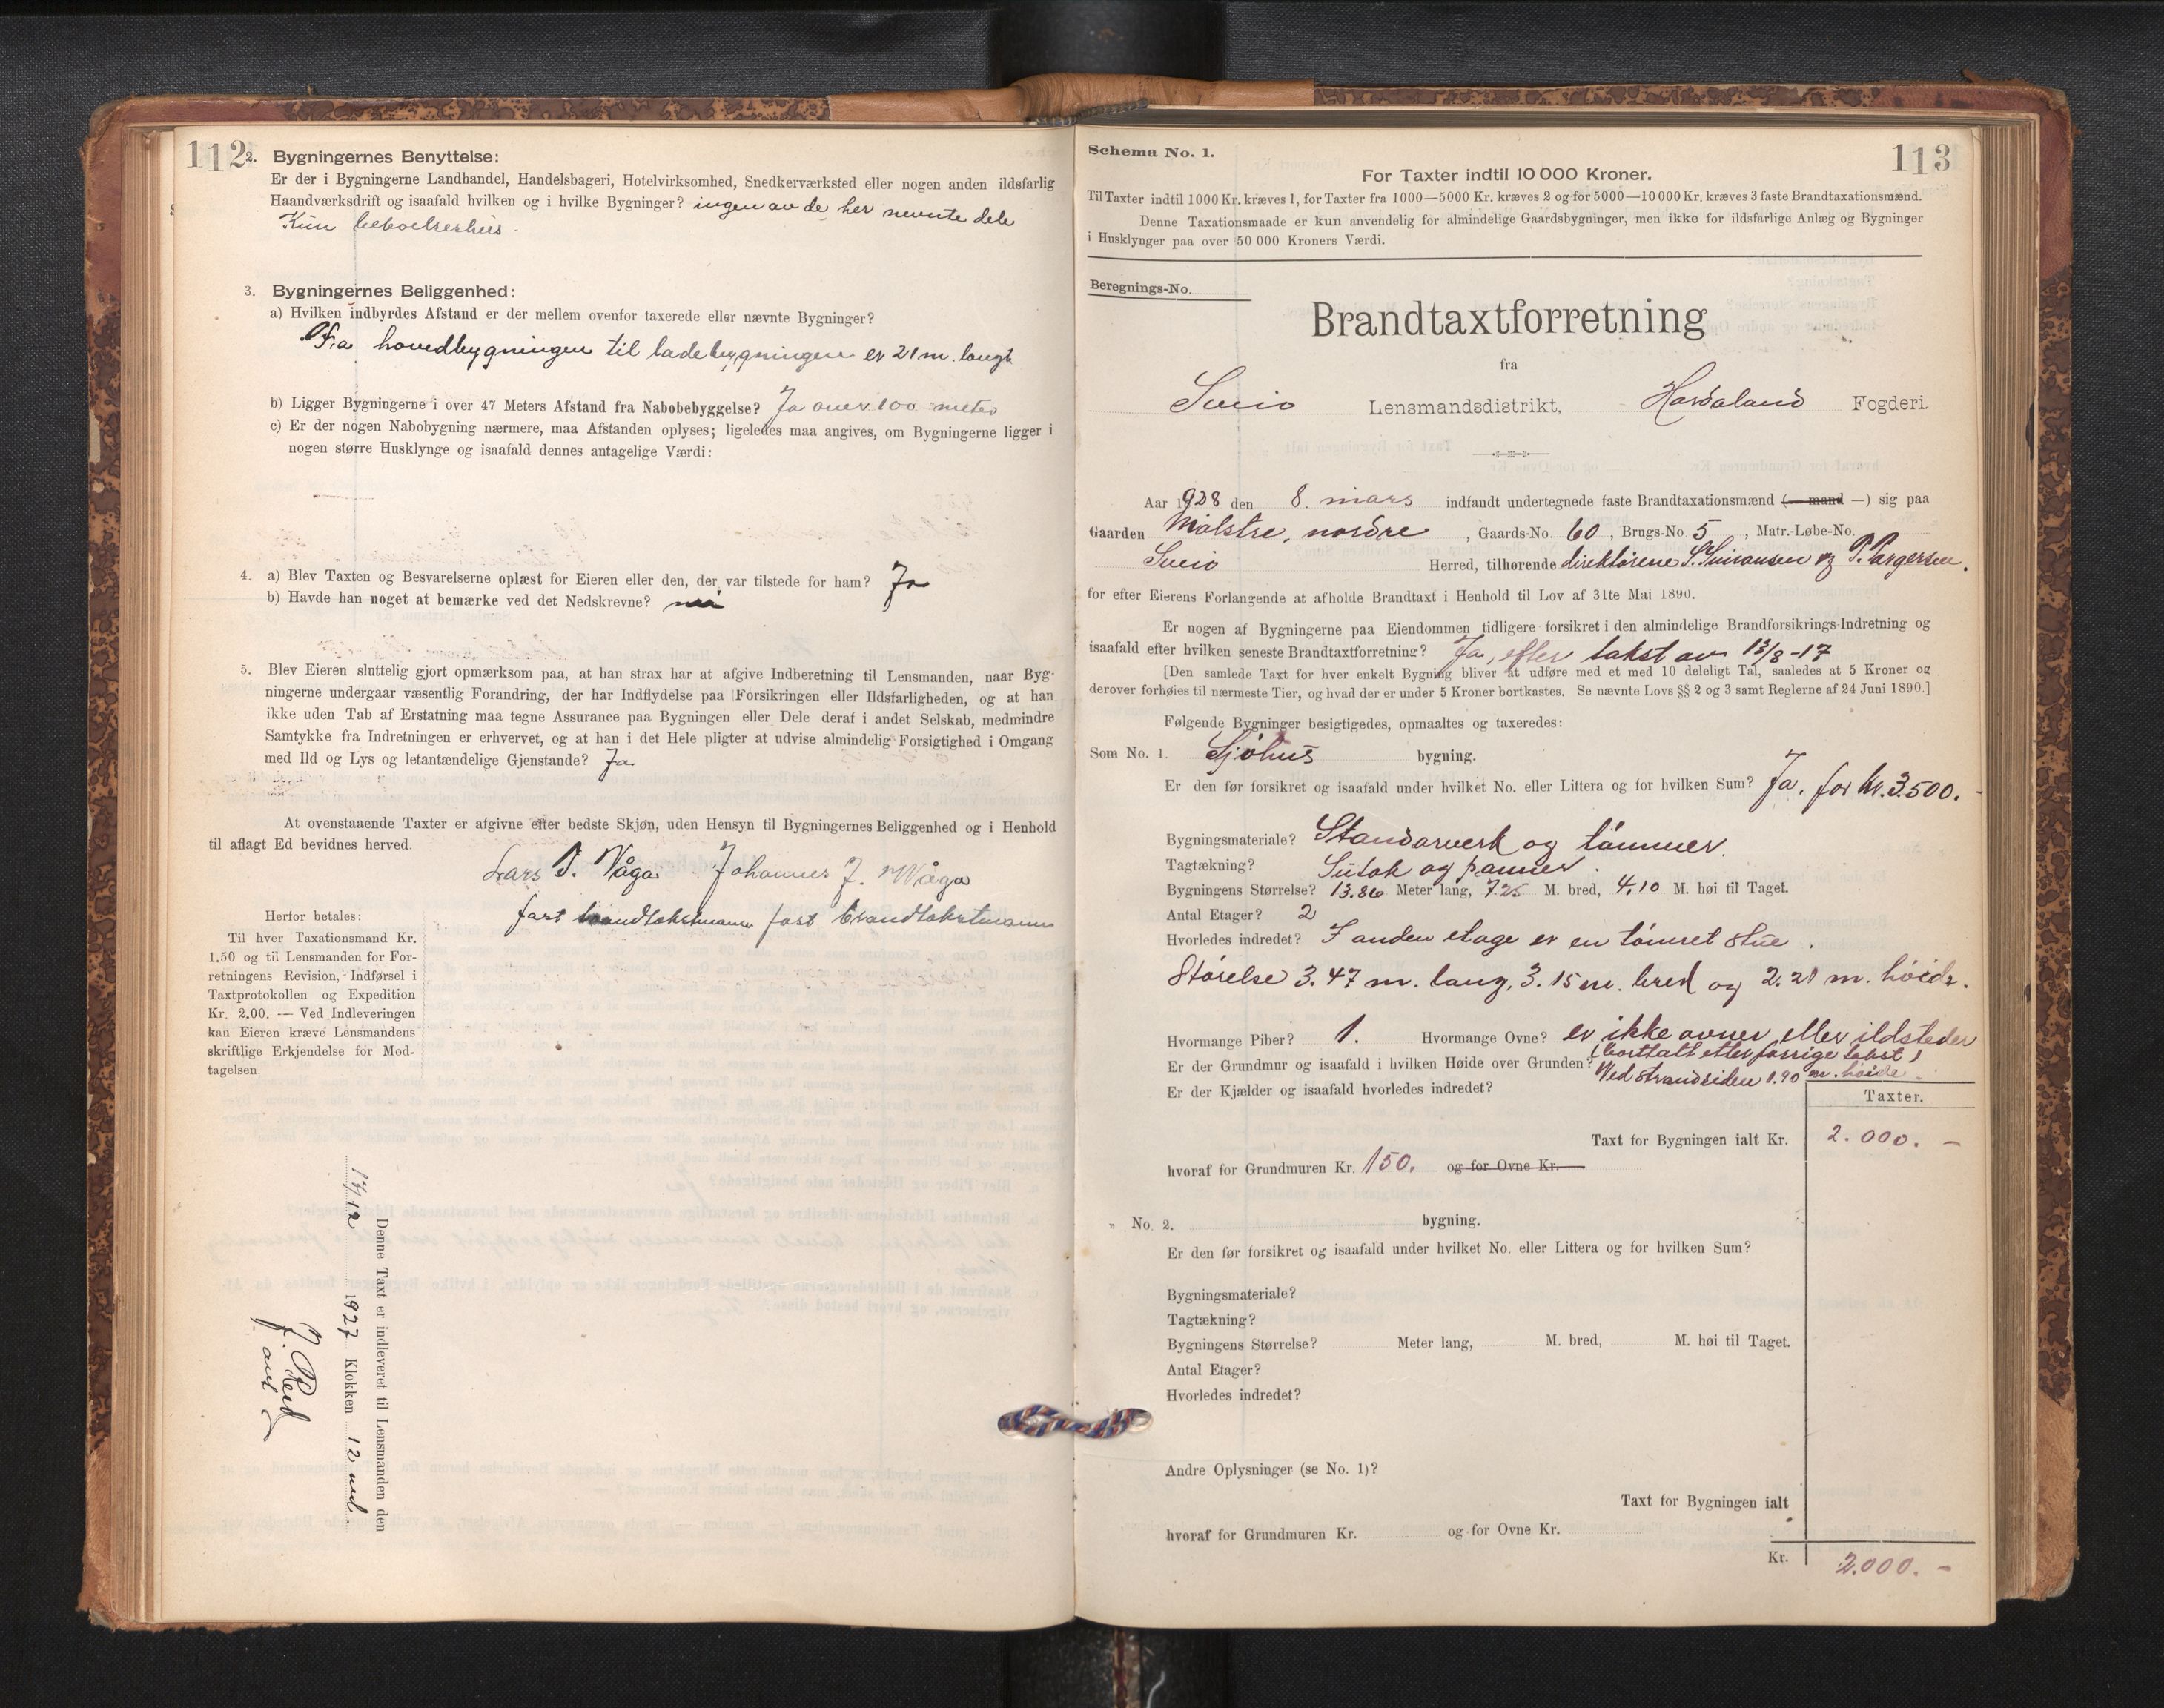 112
2. Bygningernes Benyttelse:
Er der i Bygningerne Landhandel, Handelsbageri, Hotelvirksomhed, Snedkerværksted eller nogen anden ildsfarlig
Haandværksdrift og isaafald hvilken og i hvilke Bygninger? ingen av de her nevnte dele
Kun beboelseshus.
3. Bygningernes Beliggenhed:
a) Hvilken indbyrdes Afstand er der mellem ovenfor taxerede eller nævnte Bygninger?
Fra hovedbygningen til ladebygningen er 21 m. langt
b) Ligger Bygningerne i over 47 Meters Afstand fra Nabobebyggelse? Ja over 100 meter
c) Er der nogen Nabobygning nærmere, maa Afstanden oplyses; ligeledes maa angives, om Bygningerne ligger i
nogen større Husklynge og isaafald dennes antagelige Værdi:
4. a) Blev Taxten og Besvarelserne oplæst for Eieren eller den, der var tilstede for ham? Ja
b) Havde han noget at bemærke ved det Nedskrevne? nei
5. Blev Eieren sluttelig gjort opmærksom paa, at han strax har at afgive Indberetning til Lensmanden, naar Byg-
ningerne undergaar væsentlig Forandring, der har Indflydelse paa Forsikringen eller Ildsfarligheden, og at han
ikke uden Tab af Erstatning maa tegne Assurance paa Bygningen eller Dele deraf i andet Selskab, medmindre
Samtykke fra Indretningen er erhvervet, og at han i det Hele pligter at udvise almindelig Forsigtighed i Omgang
med Ild og Lys og letantændelige Gjenstande? Ja
At ovenstaaende Taxter er afgivne efter bedste Skjøn, uden Hensyn til Bygningernes Beliggenhed og i Henhold
til aflagt Ed bevidnes herved.
Lars T. Våga Johannes J. Våga
fast brandtakstmann fast brandtakstmann
Herfor betales:
Til hver Taxationsmand Kr.
1.50 og til Lensmanden for For-
retningens Revision, Indførsel i
Taxtprotokollen og Expedition
Kr. 2.00. — Ved Indleveringen
kan Eieren kræve Lensmandens
skriftlige Erkjendelse for Mod-
tagelsen.
Denne Taxt er indleveret til Lensmanden den
17/12 1927 Klokken 12 md.
113
Schema No. 1.
For Taxter indtil 10 000 Kroner.
Til Taxter indtil 1000 Kr. kræves 1, for Taxter fra 1000—5000 Kr. kræves 2 og for 5000—10000 Kr. kræves 3 faste Brandtaxationsmænd.
Denne Taxationsmaade er kun anvendelig for almindelige Gaardsbygninger, men ikke for ildsfarlige Anlæg og Bygninger
i Husklynger paa over 50 000 Kroners Værdi.
Beregnings-No.
Brandtaxtforretning
fra
Sveio Lensmandsdistrikt, Hordaland Fogderi.
Aar 1928 den 8. mars indfandt undertegnede faste Brandtaxationsmænd (— mand —) sig paa
Gaarden Mølstre, nordre, Gaards-No. 60, Brugs-No. 5, Matr.-Løbe-No.
Sveio Herred, tilhørende direktørene S. og
for efter Eierens Forlangende at afholde Brandtaxt i Henhold til Lov af 31te Mai 1890.
Er nogen af Bygningerne paa Eiendommen tidligere forsikret i den almindelige Brandforsikrings-Indretning og
isaafald efter hvilken seneste Brandtaxtforretning? Ja, efter takst av 13/8-17
[Den samlede Taxt for hver enkelt Bygning bliver at udføre med et med 10 deleligt Tal, saaledes at 5 Kroner og
derover forhøies til nærmeste Tier, og hvad der er under 5 Kroner bortkastes. Se nævnte Lovs §§ 2 og 3 samt Reglerne af 24 Juni 1890.]
Følgende Bygninger besigtigedes, opmaaltes og taxeredes:
Som No. 1. Sjøhus bygning.
Er den før forsikret og isaafald under hvilket No. eller Littera og for hvilken Sum? Ja, for kr. 3.500.-
Bygningsmateriale? Standarverk og tømmer.
Tagtækning? Sutak og panner.
Bygningens Størrelse? 13.80 Meter lang, 7.25 M. bred, 4.10 M. høi til Taget.
Antal Etager? 2
Hvorledes indredet? I anden etage er en tømret stue.
Størelse 3.47 m. lang, 3.15 m. bred og 2.21 m. høide.
Hvormange Piber? 1. Hvormange Ovne? er ikke ovner eller ildsteder
(borttatt etter forrige takst)
Er der Grundmur og isaafald i hvilken Høide over Grunden? Ved strandsiden 1.90 m. høide.
Er der Kjælder og isaafald hvorledes indredet?
Taxter.
Taxt for Bygningen ialt Kr. 2.000.-
hvoraf for Grundmuren Kr. 150. og for Ovne Kr.
„ No. 2. bygning.
Er den før forsikret og isaafald under hvilket No. eller Littera og for hvilken Sum?
Bygningsmateriale?
Tagtækning?
Bygningens Størrelse? Meter lang, M. bred, M. høi til Taget.
Antal Etager?
Hvorledes indredet?
Andre Oplysninger (se No. 1)?
Taxt for Bygningen ialt
hvoraf for Grundmuren Kr. og for Ovne Kr.
Kr. 2.000.-